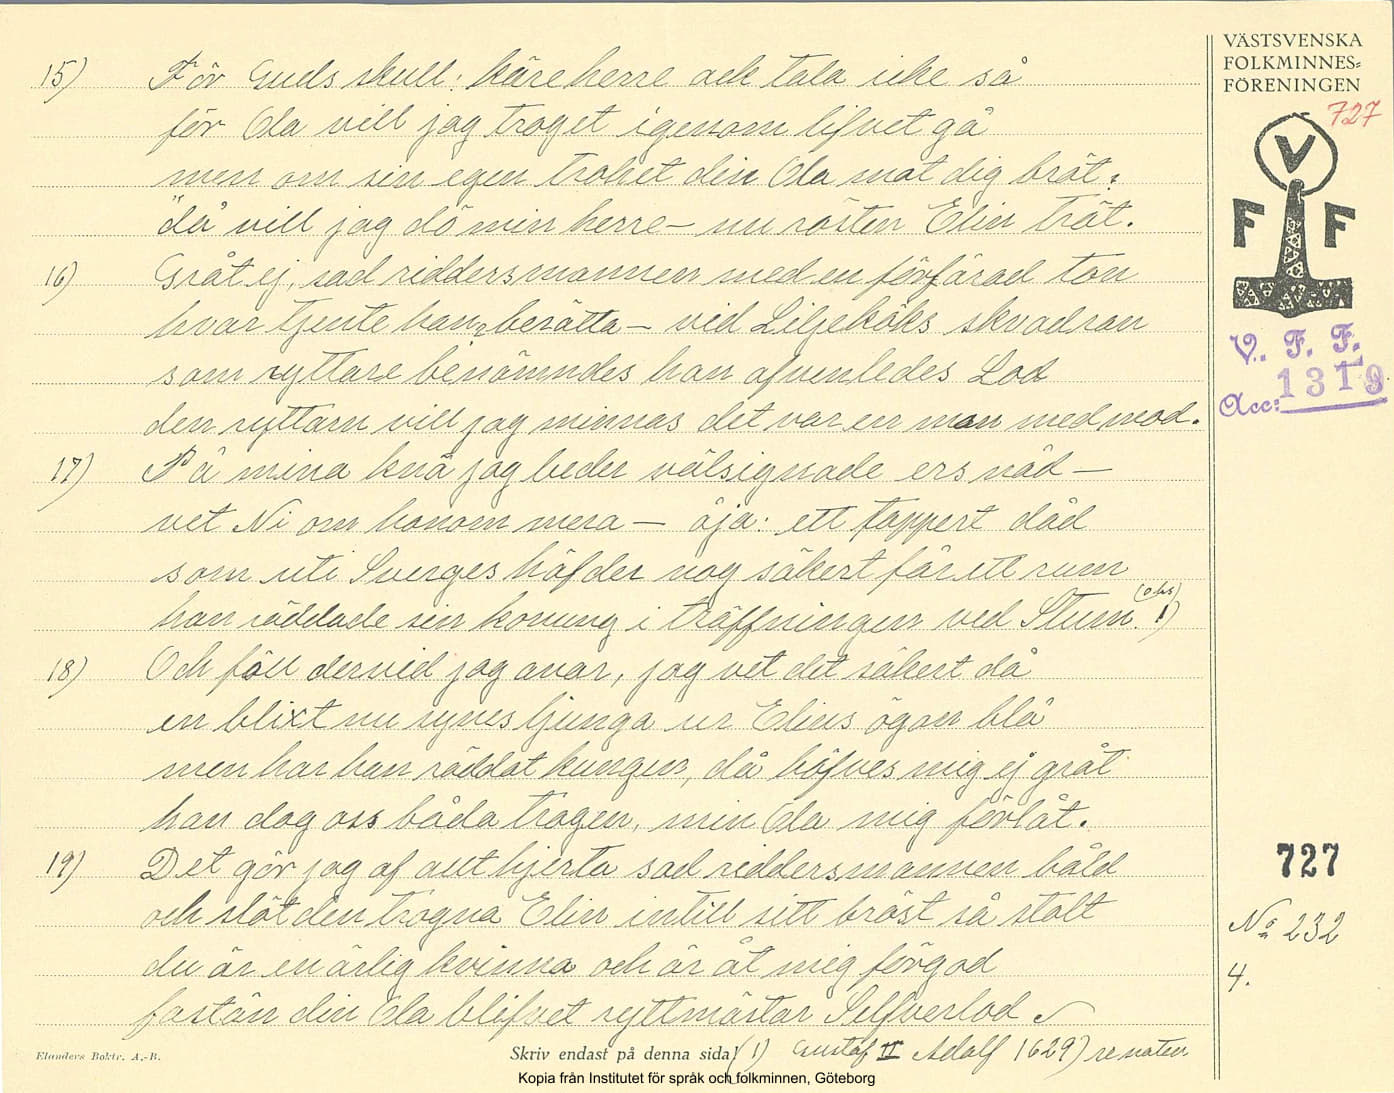 VÄSTSVENSKA
FOLKMINNES=
FÖRENINGEN
727
V
F F
V. F. F.
Acc: 1319
15) För Guds skull: käre herre ack tala icke så
för Ola vill jag troget igenom lifvet gå
men om sin egen trohet din Ola mot dig bröt.
"då" vill jag dö min herre – nu rösten Elin tröt.
16) Gråt ej, sad riddersmannen med en förfärad ton
hvar tjente han, berätta – vid Liljeköks skvadron
som ryttare benämndes han afvenledes Lod
den ryttarn vill jag minnas det var en man med mod.
17) På mina knä jag beder välsignade ers nåd –
vet Ni om honom mera – åja: ett tappert dåd
som uti Sverges häfder nog säkert får ett rum
han räddade sin konung i träffningen ved Stum. (obs) 1)
18) Och föll dervid jag anar, jag vet det säkert då
en blixt nu synes ljunga ur Elins ögon blå
men har han räddat kungen, då höfves mig ej gråt
han dog oss båda trogen, min Ola mig förlåt.
19) Det gör jag af allt hjerta sad riddersmannen båld
och slöt den trogna Elin intill sitt bröst så stolt
du är en ärlig kvinna och är åt mig förgod
fastän din Ola blifvet ryttmästar Silfverlod
727
No 232
4.
Elanders Boktr. A.-B.
Skriv endast på denna sida! (1) Gustaf II Adolf 1629)
Kopia från Institutet för språk och folkminnen, Göteborg